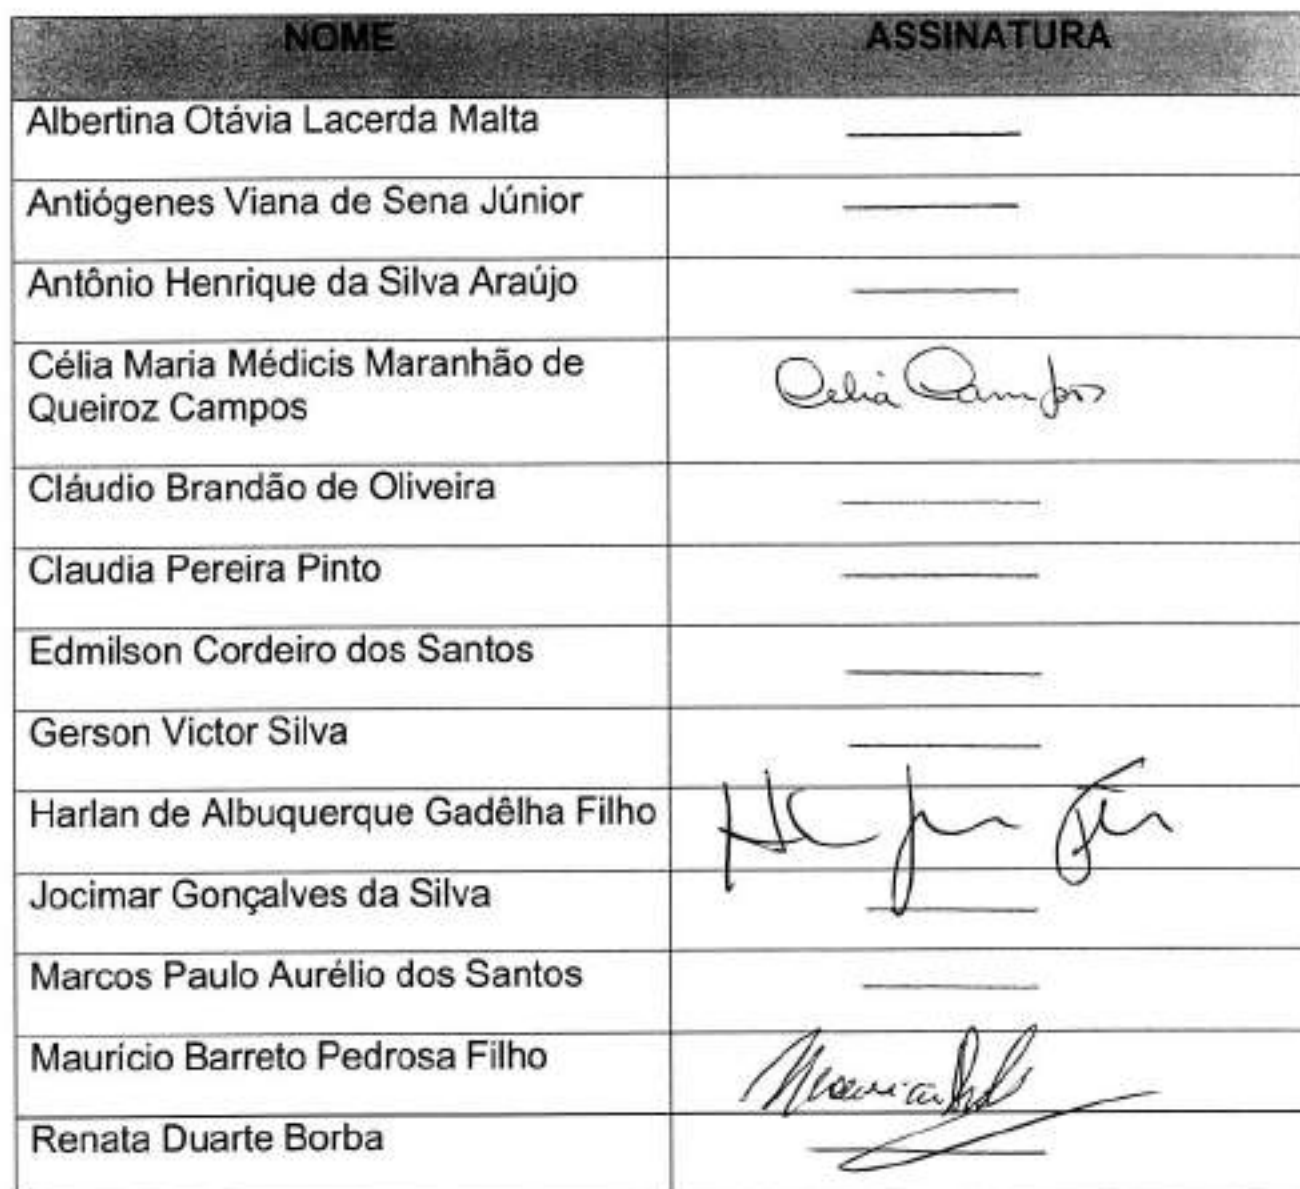 NOME ASSINATURA
Albertina Otávia Lacerda Malta
Antiógenes Viana de Sena Júnior
Antônio Henrique da Silva Araújo
Célia Maria Médicis Maranhão de
Queiroz Campos
Celia Campos
Cláudio Brandão de Oliveira
Claudia Pereira Pinto
Edmilson Cordeiro dos Santos
Gerson Victor Silva
Harlan de Albuquerque Gadêlha Filho
Jocimar Gonçalves da Silva
Marcos Paulo Aurélio dos Santos
Maurício Barreto Pedrosa Filho
Renata Duarte Borba